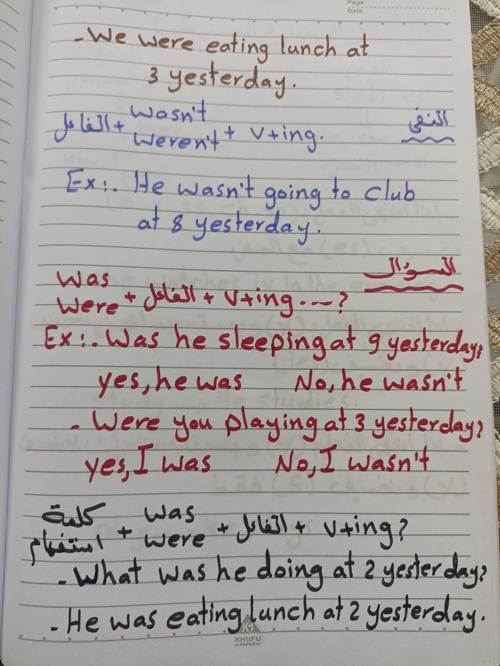 Page
Date
- We were eating lunch at
3 yesterday.
النفى
الفاعل + wasn't / weren't + v+ing.
Ex:. He wasn't going to club
at 8 yesterday.
السؤال
Was / Were + الفاعل + v+ing ...?
Ex:. Was he sleeping at 9 yesterday?
yes, he was No, he wasn't
- Were you playing at 3 yesterday?
yes, I was No, I wasn't
كلمة استفهام + was / were + الفاعل + v+ing?
- What was he doing at 2 yesterday?
- He was eating lunch at 2 yesterday.
KHUFU
PAPER